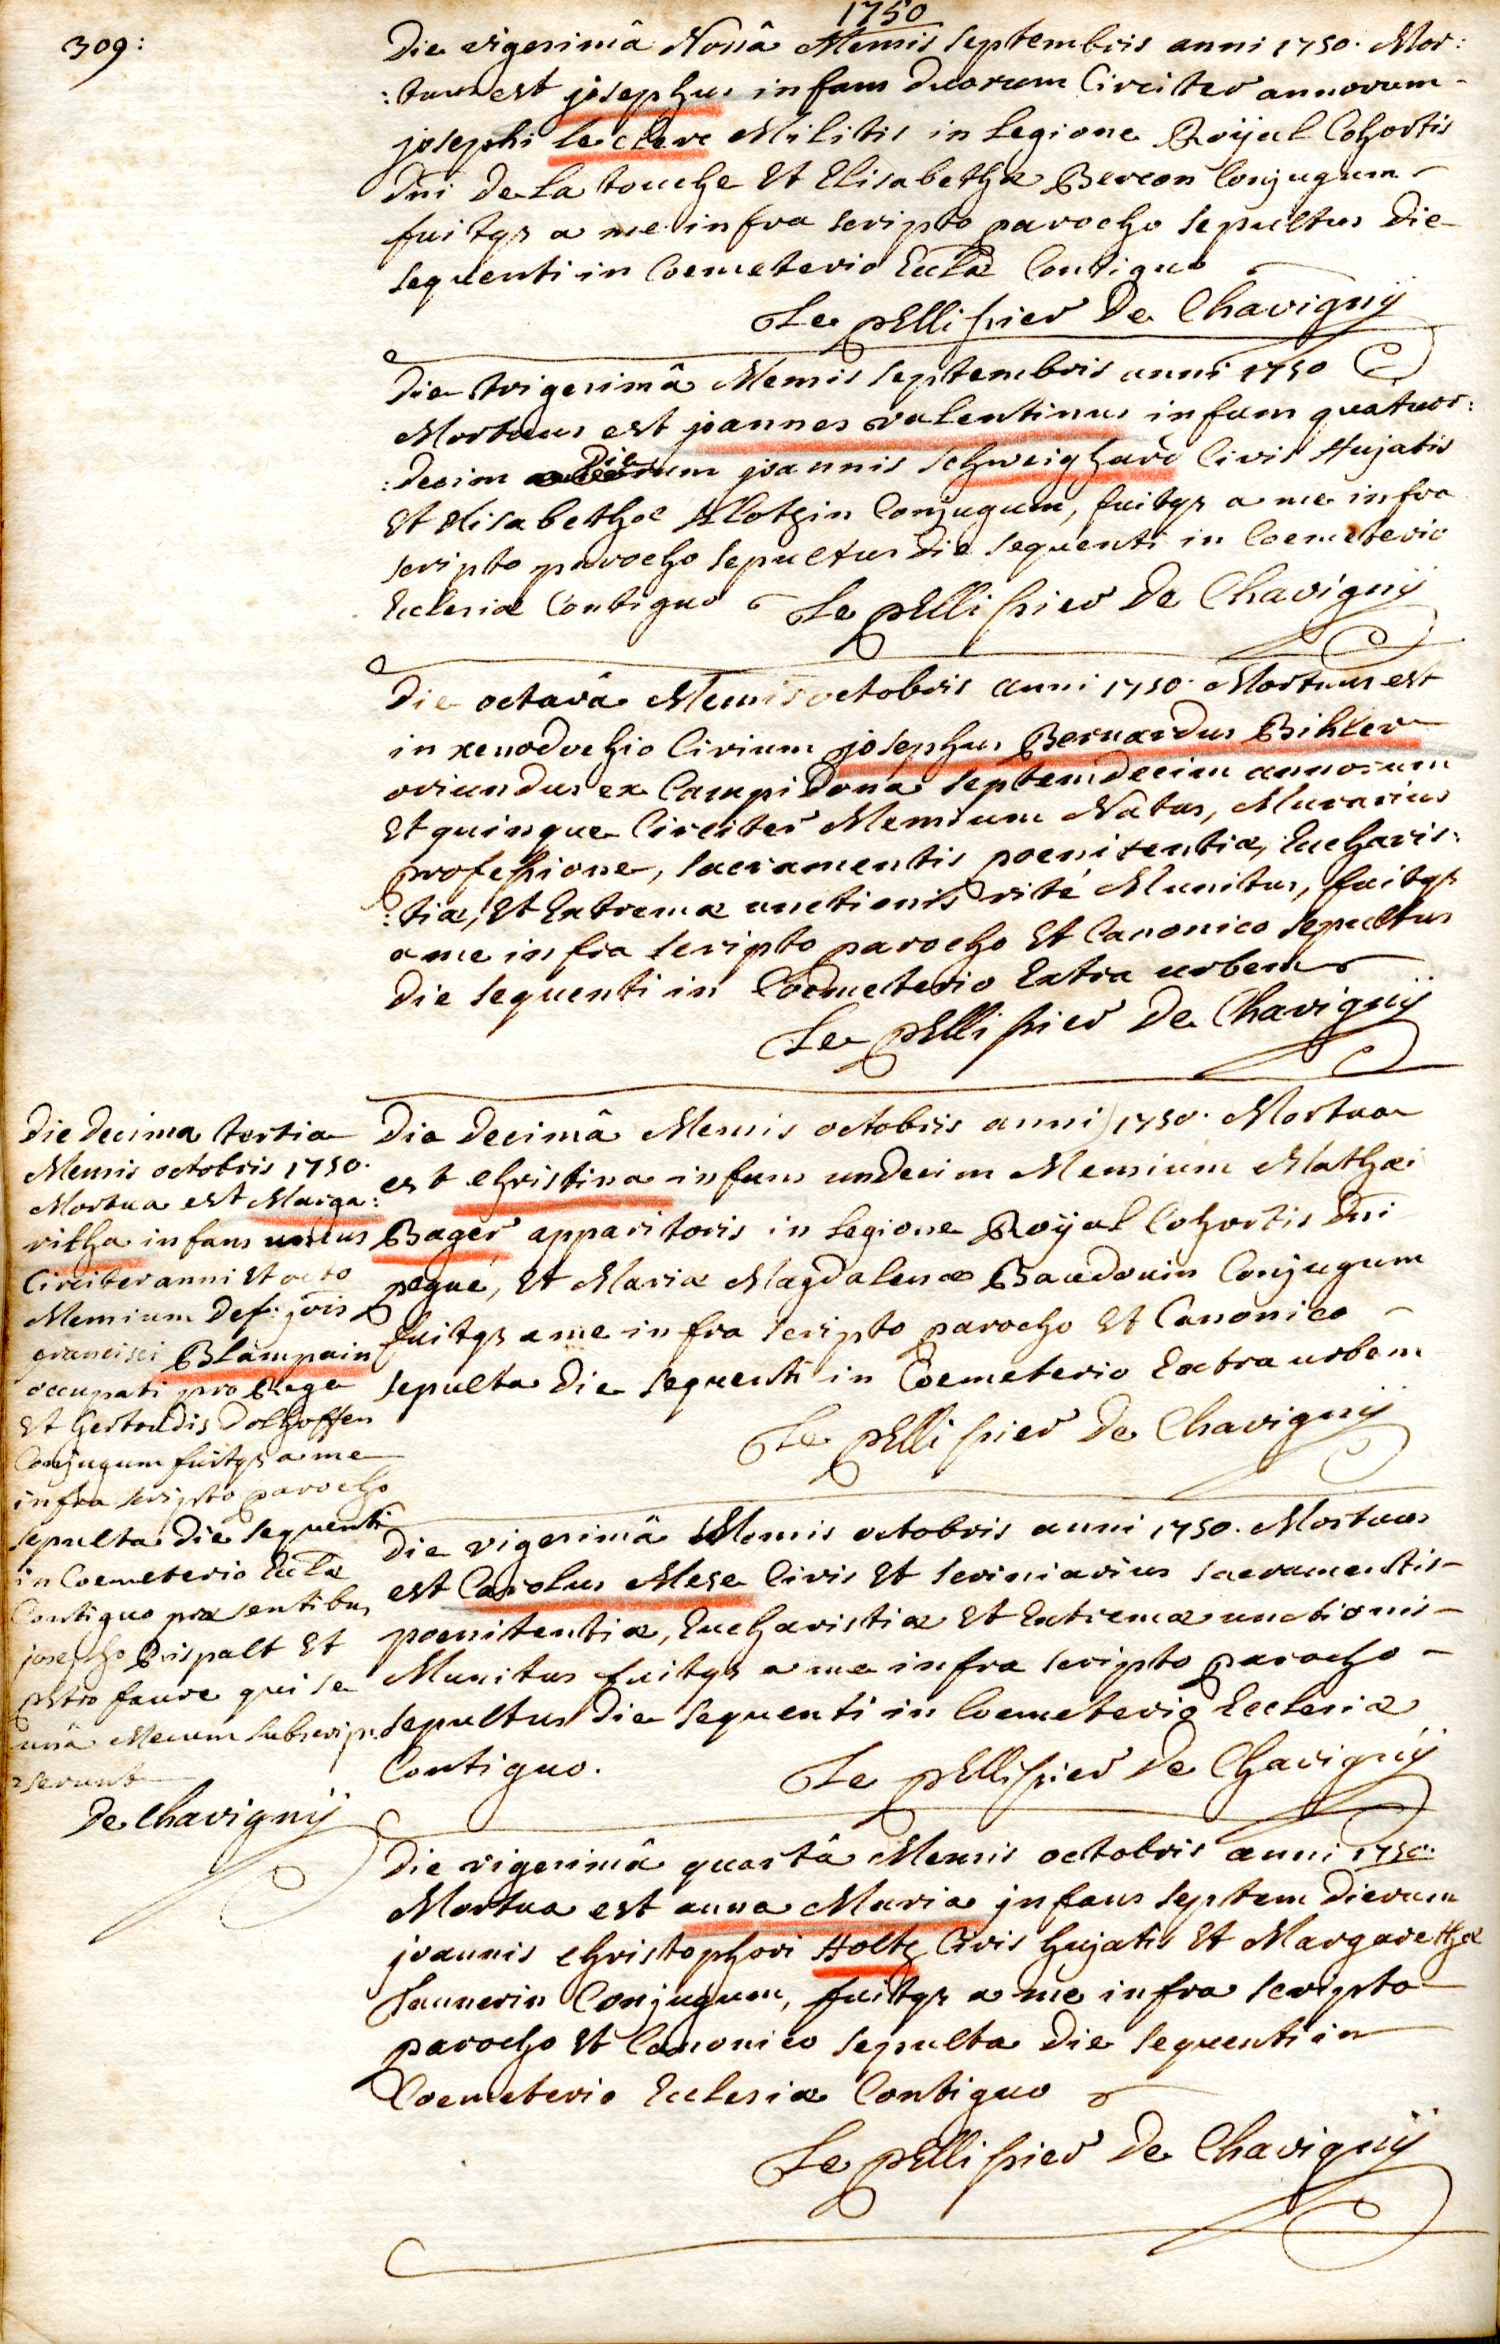 1750
309:
Die vigesimâ Nonâ Mensis Septembris anni 1750. Mor:
:tuus est josephus infans duorum Circiter annorum
josephi le clerc Militis in Legione Roÿal Cohortis
Dni De La touche Et Elisabethæ Bercon Conjugum
fuitqz a me infra scripto parocho sepultus Die
sequenti in Coemeterio Eccłæ Contiguo
Le pElliſsier De Chavignÿ
Die trigesimâ Mensis Septembris anni 1750
Mortuus est joannes valentinus infans quatuor:
:decim Dierum joannis Schweighard Civis Hujatis
Et Elisabethæ Klotzin Conjugum, fuitqz a me infra
scripto parocho sepultus die sequenti in Coemeterio
Ecclesiæ Contiguo Le pElliſsier De Chavignÿ
Die octavâ Mensis octobris anni 1750. Mortuus est
in xenodochio Civium josephus Bernardus Bihler
oriundus ex Campidona septemdecim annorum
Et quinque Circiter Mensium Natus, Murarius
profeſsione, sacramentis poenitentiæ, Eucharis:
:tiæ, Et Extremæ unctionis rité Munitus, fuitqz
a me infra scripto parocho Et Canonico sepultus
die sequenti in Coemeterio Extra urbem
Le pElliſsier De Chavignÿ
Die Decimâ Mensis octobris anni 1750. Mortua
est christina infans undecim Mensium Mathæi
Bager apparitoris in Legione Roÿal Cohortis Dni
pegué, Et Mariæ Magdalenæ Baudouin Conjugum
fuitqz a me infra scripto parocho Et Canonico
sepulta Die sequenti in Coemeterio Extra urbem
Le pElliſsier De Chavignÿ
Die Decima tertia
Mensis octobris 1750.
Mortua est Marga:
ritha infans unius
Circiter anni Et octo
Mensium Def: jois
francisci Blampain
occupati pro Rege
Et Gertrudis Dolhoffen
Conjugum fuitqz a me
infra scripto parocho
sepulta Die sequenti
in Coemeterio Eccłæ
Contiguo præsentibus
josepho Rispalt Et
petro faure qui se
unâ Mecum subscrip:
:serunt
De Chavignÿ
Die vigesimâ Mensis octobris anni 1750. Mortuus
est Carolus Mese Civis Et scriniarius sacramentis
poenitentiæ, Eucharistiæ Et Extremæ unctionis
Munitus fuitqz a me infra scripto parocho
sepultus die sequenti in Coemeterio Ecclesiæ
Contiguo. Le pElliſsier De Chavignÿ
Die vigesimâ quartâ Mensis octobris anni 1750.
Mortua est anna Maria infans septem Dierum
joannis christophori Holtz Civis hujatis Et Margarethæ
Jannerin Conjugum, fuitqz a me infra scripto
parocho Et Canonico sepulta Die sequenti in
Coemeterio Ecclesiæ Contiguo
Le pElliſsier De Chavignÿ